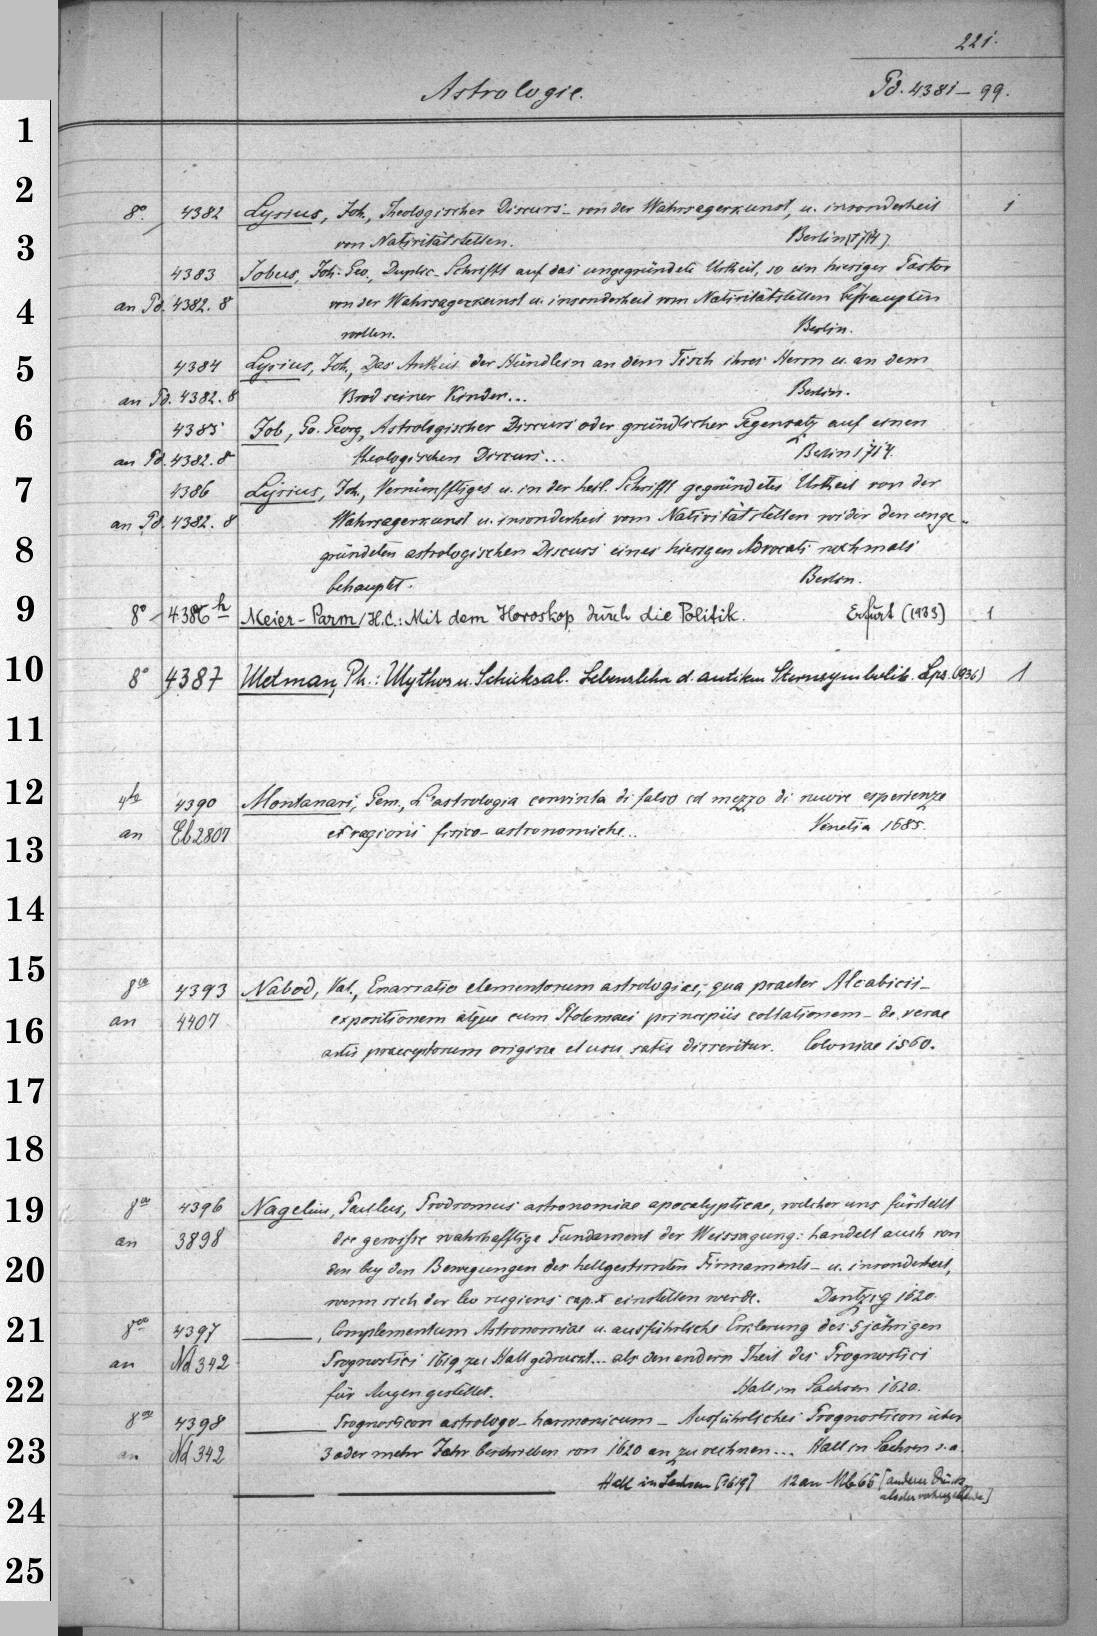 221.
Astrologie. Pd. 4381-99.
1
2
8° 4382 Lysius, Joh., Theologischer Discurs - von der Wahrsagerkunst, u. insonderheit 1
3
von Nativitätstellen. Berlin [1714]
4383 Jobus, Joh. Geo., Duplic. Schrifft auf das ungegründete Urtheil, so ein hiesiger Pastor
4
an Pd. 4382. 8 von der Wahrsagerkunst u. insonderheit vom Nativitätstellen behaupten
wollen. Berlin.
5
4384 Lysius, Joh., Das Antheil der Hündlein an dem Tisch ihres Herrn u. an dem
an Pd. 4382. 8 Brod seiner Kinder... Berlin.
6
4385 Job, Jo. Georg, Astrologischer Discurs oder gründlicher Gegensatz auf einen
an Pd. 4382. 8 theologischen Discurs... Berlin 1714.
7
4386 Lysius, Joh., Vernünfftiges u. in der heil. Schrifft gegründetes Urtheil von der
an Pd. 4382. 8 Wahrsagerkunst u. insonderheit vom Nativitätstellen wider den unge-
8
gründeten astrologischen Discurs eines hiesigen Advocati nochmals
behauptet. Berlin.
9
8° 4386 h Meier-Parm, H.C.: Mit dem Horoskop durch die Politik. Erfurt (1933) 1
10
8° 4387 Metman, Ph.: Mythos u. Schicksal. Lebenslehre d. antiken Sternsymbolik. Lpz. (1936) 1
11
12
4to 4390 Montanari, Gem., L'astrologia convinta di falso col mezzo di nuove esperienze
an Eb 2807 et ragioni fisico-astronomiche... Venetia 1685.
13
14
15
8vo 4393 Nabod, Val., Enarratio elementorum astrologiae, qua praeter Alcabicii-
16
an 4407 expositionem atque cum Ptolemaei principiis collationem - de verae
artis praeceptorum origine et usu satis disseritur. Coloniae 1560.
17
18
19
8vo 4396 Nagelius, Paullus, Prodromus astronomiae apocalypticae, welcher uns fürstellt
an 3898 die gewisse wahrhafftige Fundament der Weissagung: handelt auch von
20
den bey den Bewegungen des hellgestirnten Firmaments - u. insonderheit,
wenn sich der leo rugiens cap. X einstellen werde. Dantzig 1620.
21
8vo 4397 ——, Complementum Astronomiae u. ausführliche Erklerung des 5 jährigen
an Nd 342 Prognostici 1619 zu Hall gedruckt... als den andern Theil des Prognostici
22
für Augen gestellet. Hall in Sachsen 1620.
8vo 4398 —— Prognosticon astrologo-harmonicum - Ausführliches Prognosticon über
23
an Nd 342 3 oder mehr Jahr beschrieben von 1620 an zu rechnen... Hall in Sachsen s.a.
—— —— Hall in Sachsen [1619] 12 an Mb 65 [anderer Druck
als der vorhergehende]
24
25